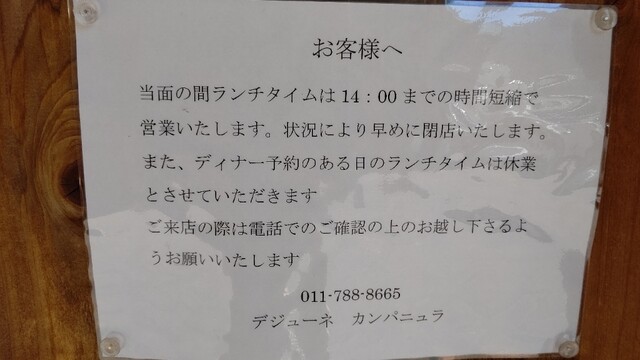 お客様へ
当面の間ランチタイムは 14：00 までの時間短縮で
営業いたします。状況により早めに閉店いたします。
また、ディナー予約のある日のランチタイムは休業
とさせていただきます
ご来店の際は電話でのご確認の上のお越し下さるよ
うお願いいたします
011-788-8665
デジューネ　カンパニュラ